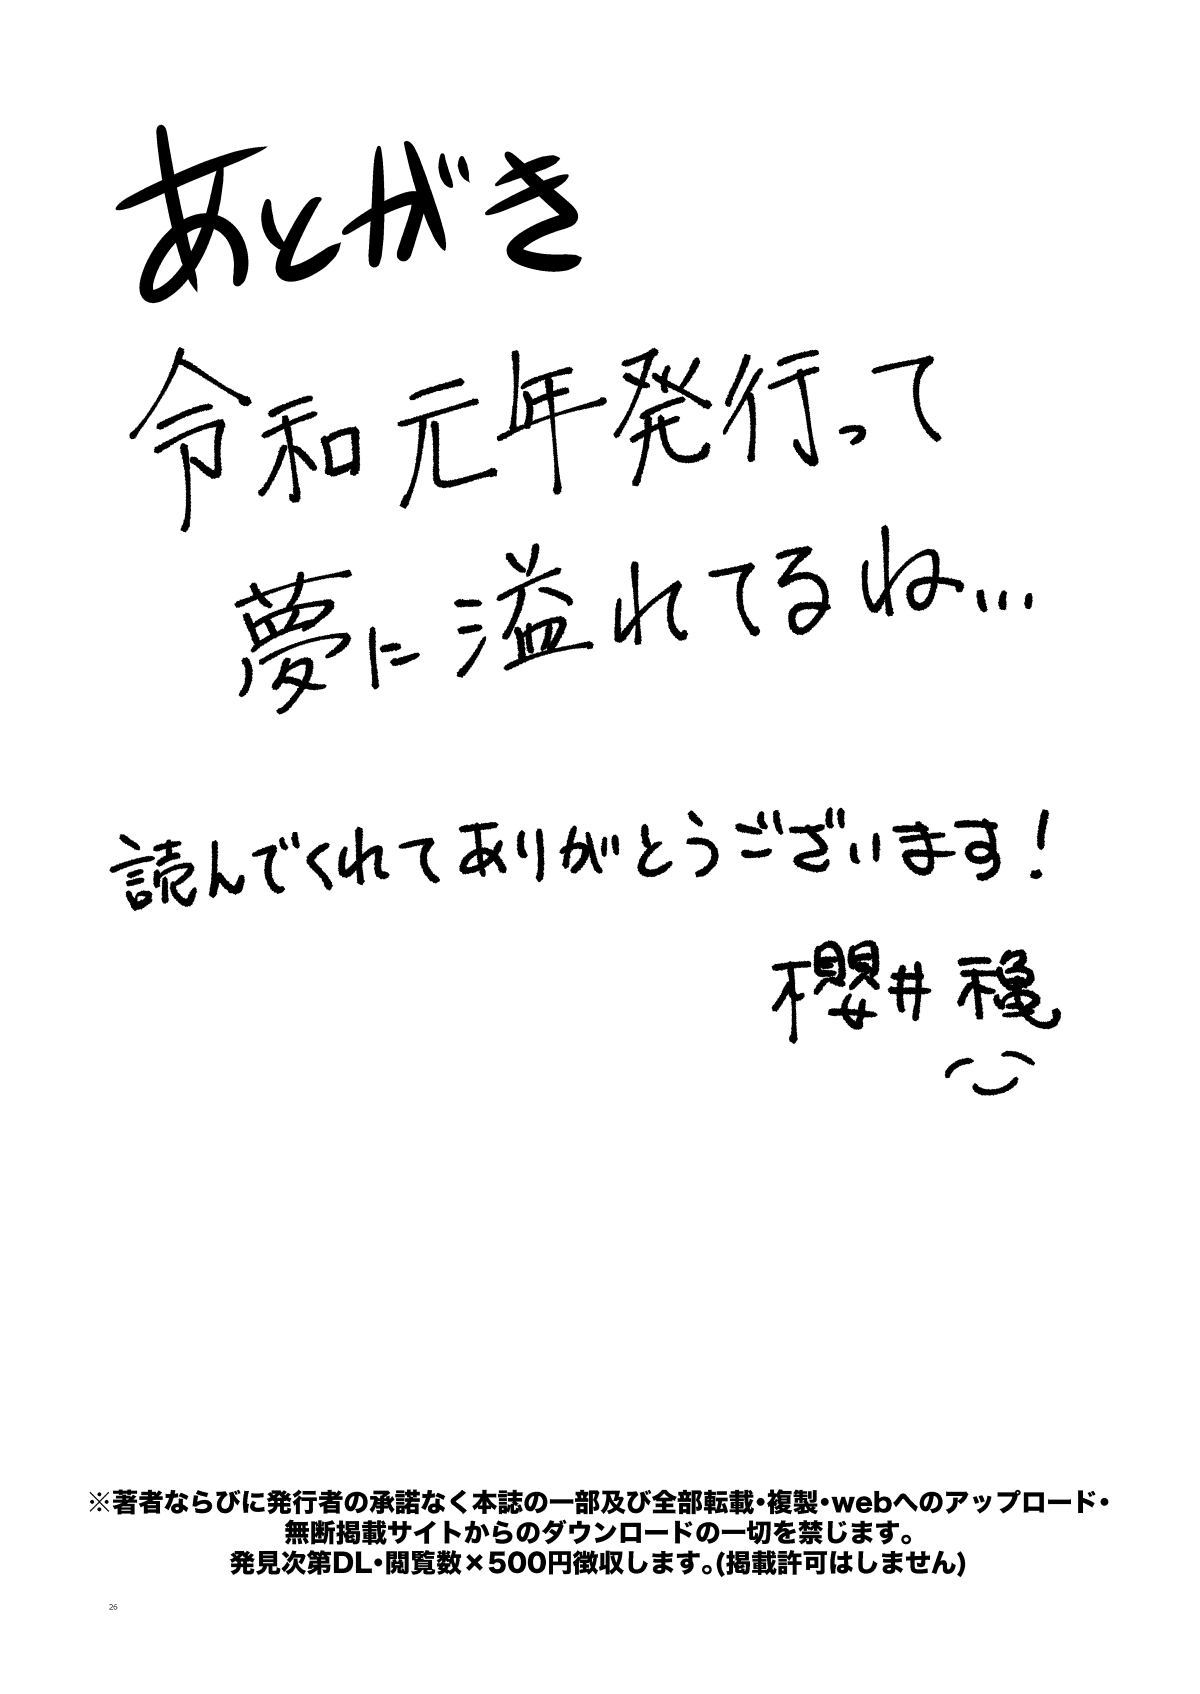 あとがき
令和元年発行って
夢に溢れてるね...
読んでくれてありがとうございます!
櫻井 穐
※著者ならびに発行者の承諾なく本誌の一部及び全部転載・複製・webへのアップロード・
無断掲載サイトからのダウンロードの一切を禁じます。
発見次第DL・閲覧数×500円徴収します。(掲載許可はしません)
26